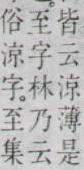 皆云涼薄是
至字林乃云
俗涼字。至集